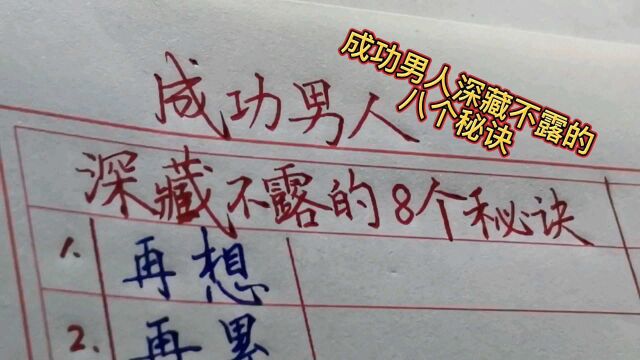 成功男人深藏不露的
八个秘诀
成功男人
深藏不露的8个秘诀
1. 再想
2. 再累